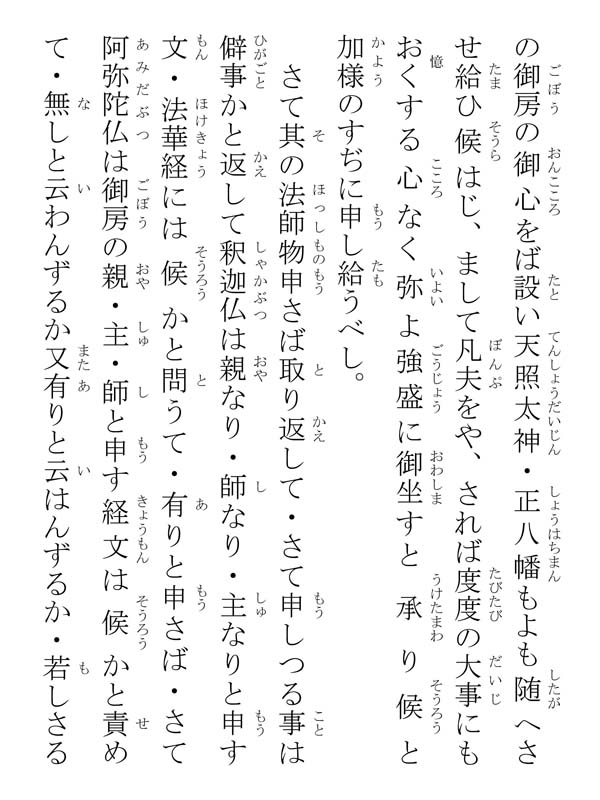 の御房の御心をば設い天照太神・正八幡もよも随へさ
せ給ひ候はじ、まして凡夫をや、されば度度の大事にも
おくする心なく弥よ強盛に御坐すと承り候と
加様のすぢに申し給うべし。
さて其の法師物申さば取り返して・さて申しつる事は
僻事かと返して釈迦仏は親なり・師なり・主なりと申す
文・法華経には候かと問うて・有りと申さば・さて
阿弥陀仏は御房の親・主・師と申す経文は候かと責め
て・無しと云わんずるか又有りと云はんずるか・若しさる